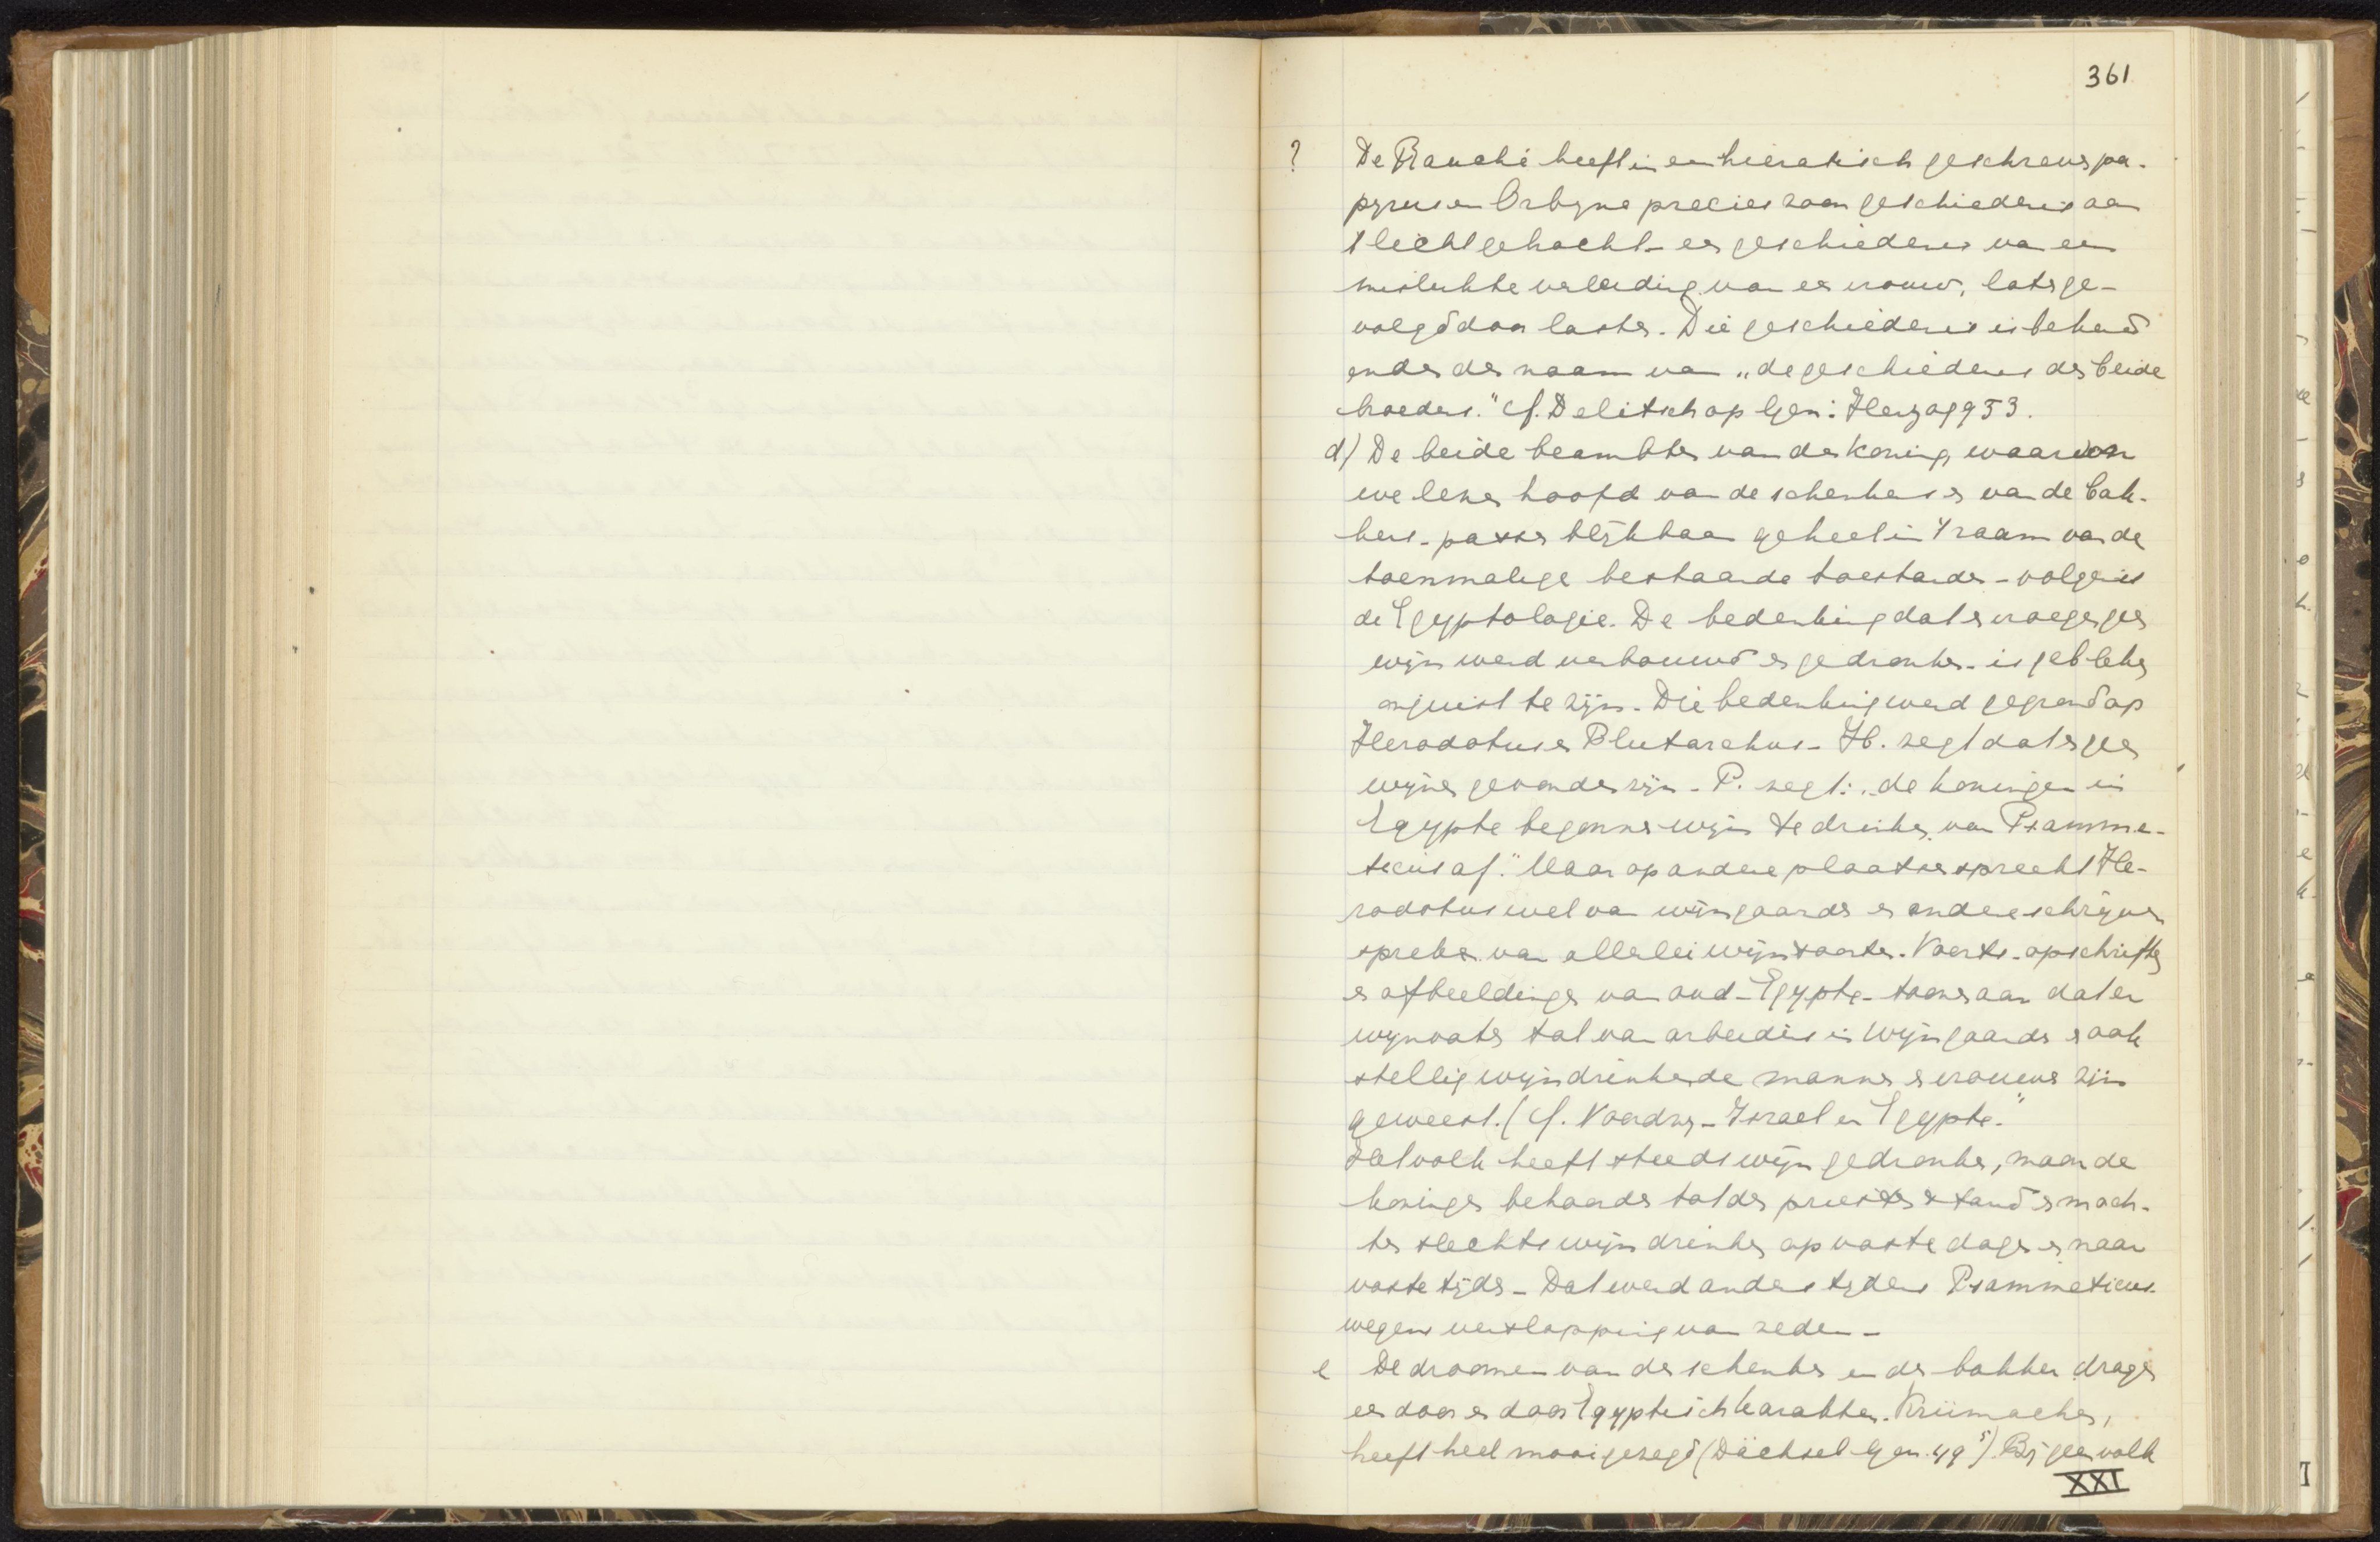 361
? De Rauché heeft in een hieratisch geschreven pa-
pyrus en Orbyne precies zoon geschiedenis aan
't licht gebracht - een geschiedenis van een
mislukte verleiding van een vrouw, later ge-
volgd door laster. Die geschiedenis is bekend
onder den naam van "de geschiedenis der beide
broeders." cf. Delitsch op Gen: Herzog 953.
d) De beide beambten van den Koning, waarvan
we lezen hoofd van de schenkers en van de bak-
kers - passen blijkbaar geheel in 't raam van de
toenmalige bestaande toestanden - volgens
de Egyptologie. De bedenking dat er vroeger geen
wijn werd verbouwd en gedronken - is gebleken
onjuist te zijn. Die bedenking werd gegrond op
Herodotus en Plutarchus - H. zegt dat er geen
wijnen gevonden zijn - P. zegt: "de koningen in
Egypte begonnen wijn te drinken van Psamme-
ticus af." Maar op andere plaatsen spreekt He-
rodotus wel van wijngaarden en andere schrijvers
spreken van allerlei wijnsoorten. Voorts - opschriften
en afbeeldingen van oud-Egypte - toonen aan dat er
wijnvaten tal van arbeiders in wijngaarden en ook
stellig wijndrinkende mannen en vrouwen zijn
geweest. (cf. Noordtzy - Israel en Egypte."
Het volk heeft steeds wijn gedronken, maar de
koningen behoorden tot den priesterstand en moch-
ten slechts wijn drinken op vaste dagen en naar
vaste tijden - Dat werd anders tijdens Psammeticus
wegens verslapping van zeden -
e De droomen van den schenker en den bakker dragen
een door en door Egyptisch karakter. Krümacher,
heeft heel mooi gezegd (Dächsel Gen. 49 5) Bij geen volk
XXI